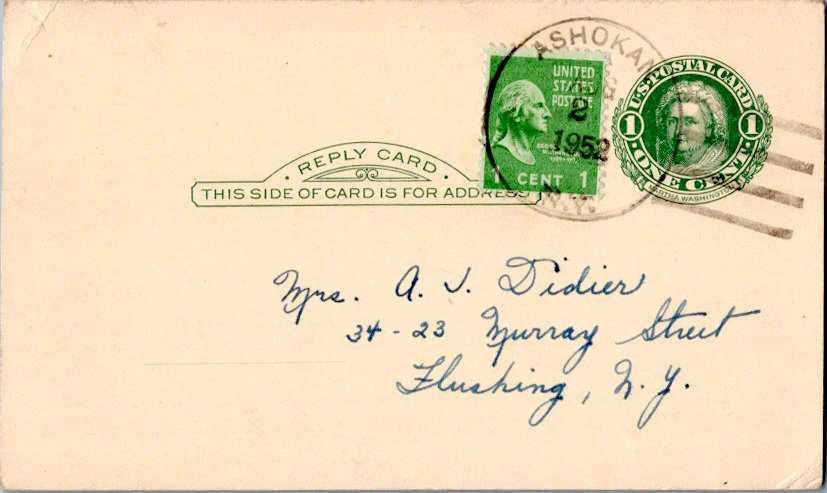 ASHOKAN
2
1952
N.Y.
UNITED
STATES
POSTAGE
1 CENT 1
U.S. POSTAL CARD
1 1
ONE CENT
MARTHA WASHINGTON
REPLY CARD
THIS SIDE OF CARD IS FOR ADDRESS
Mrs. A. J. Didier
34-23 Murray Street
Flushing, N.Y.